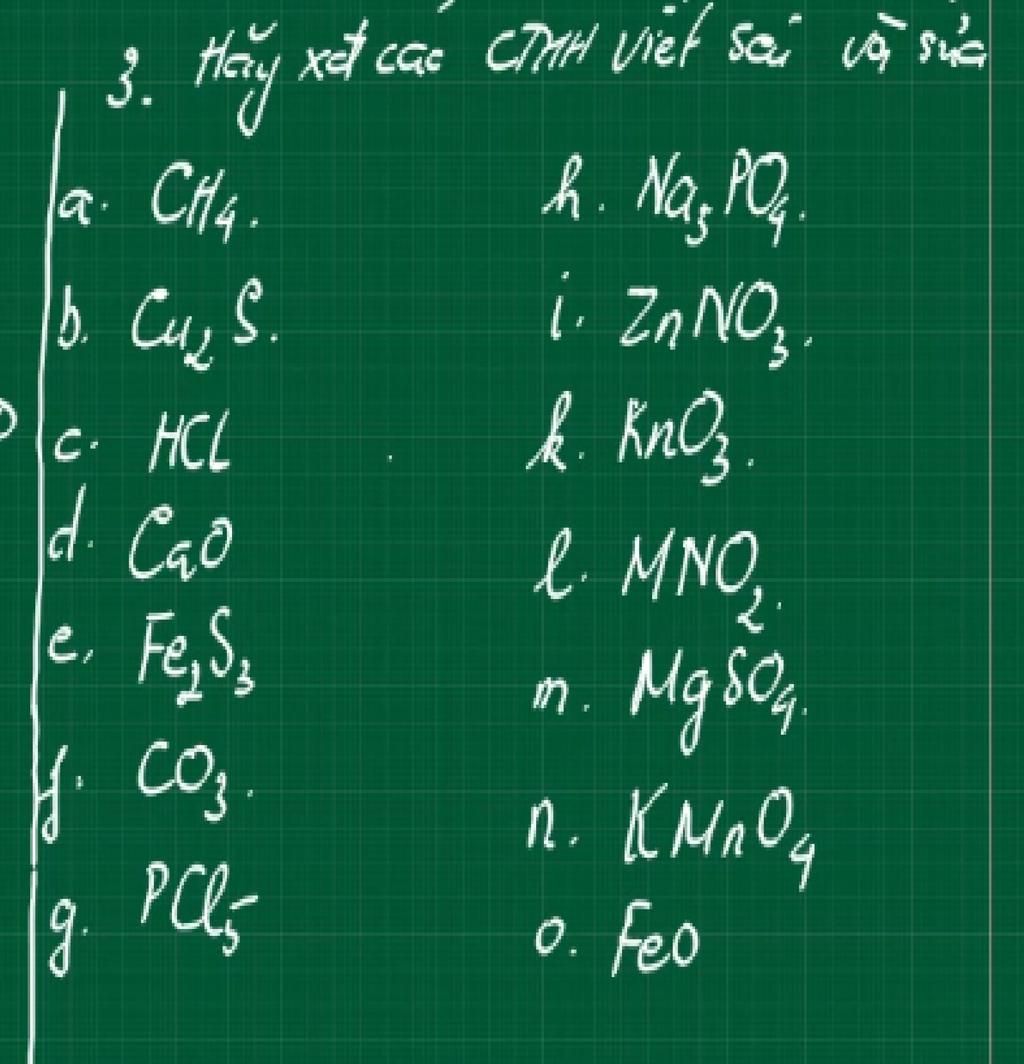 3. Hãy xét các CTHH viết sai và sửa
a. CH₄.
b. Cu₂S.
c. HCL
d. CaO
e, Fe₂S₃
f. CO₃.
g. PCl₅
h. Na₃PO₄.
i. ZnNO₃.
k. KnO₃.
l. MNO₂.
m. MgSO₄.
n. KMnO₄
o. FeO